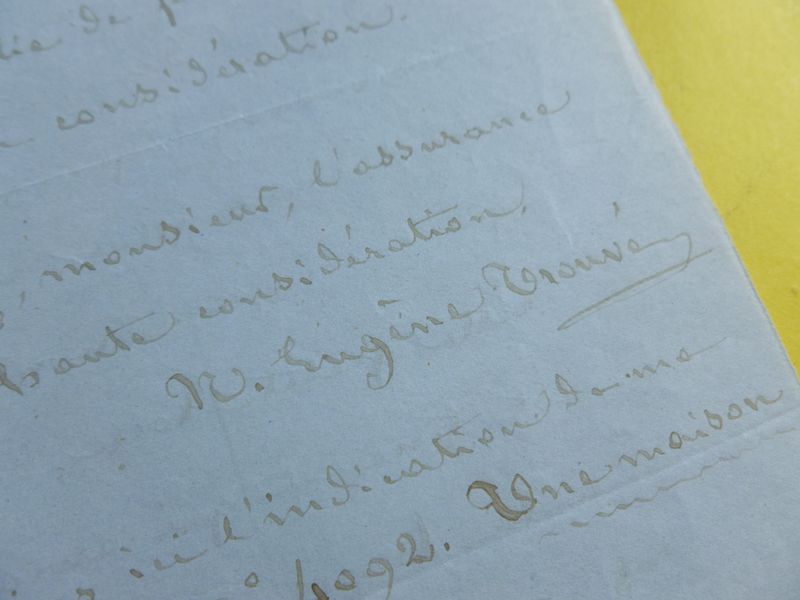 de
considération.
monsieur, l'assurance
haute considération.
N. Eugène Trouvé
ici l'indication de me
° 4092. Une maison